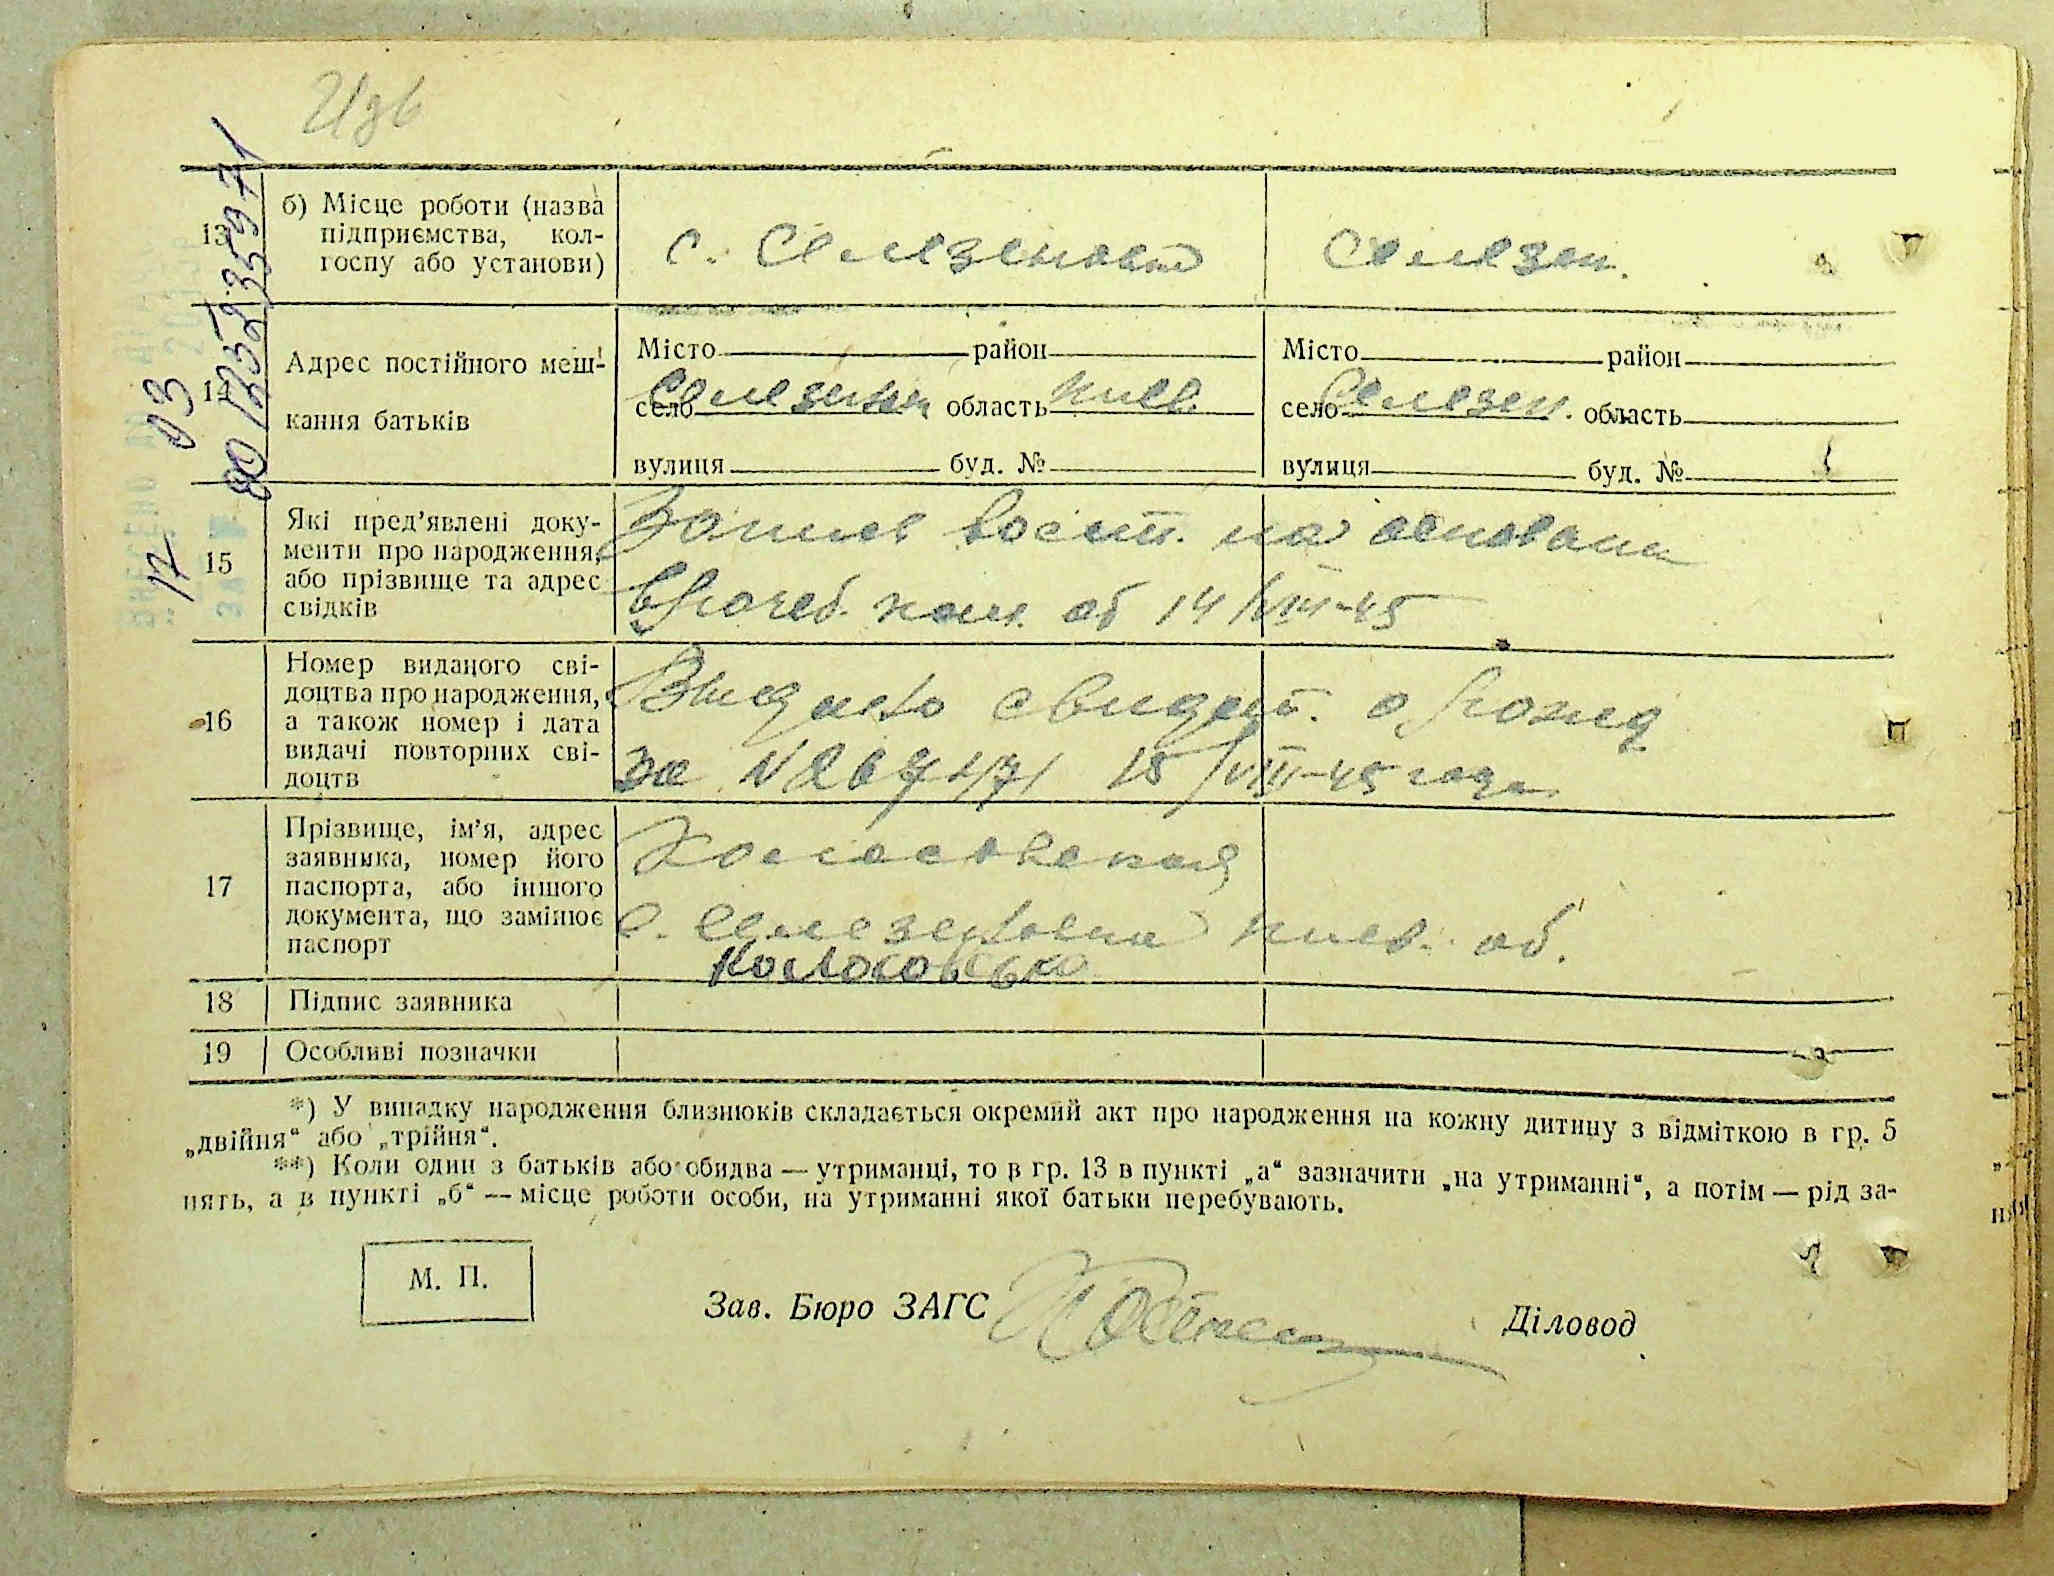 Изв
13
б) Місце роботи (назва
підприємства, кол-
госпу або установи)
с. Селезеновка
Селезен.
14
Адрес постійного меш-
кання батьків
Місто район
село Селезенки область Киев.
вулиця буд. №
Місто район
село Селезен. область
вулиця буд. №
15
Які пред’явлені доку-
менти про народження,
або прізвище та адрес
свідків
Запись восст. на основани
врачеб. ком. об 14/VIII-45
16
Номер виданого сві-
доцтва про народження,
а також номер і дата
видачі повторних сві-
доцтв
Выдано свидет. о рожд
за № 15/VIII-45 года
17
Прізвище, ім’я, адрес
заявника, номер його
паспорта, або іншого
документа, що замінює
паспорт
Колосовская
с. Селезеновка киев. об.
Колосовська
18
Підпис заявника
19
Особливі позначки
*) У випадку народження близнюків складається окремий акт про народження на кожну дитину з відміткою в гр. 5
„двійня“ або „трійня“.
**) Коли один з батьків або обидва — утриманці, то в гр. 13 в пункті „а“ зазначити „на утриманні“, а потім — рід за-
нять, а в пункті „б“ — місце роботи особи, на утриманні якої батьки перебувають.
М. П.
Зав. Бюро ЗАГС
Діловод